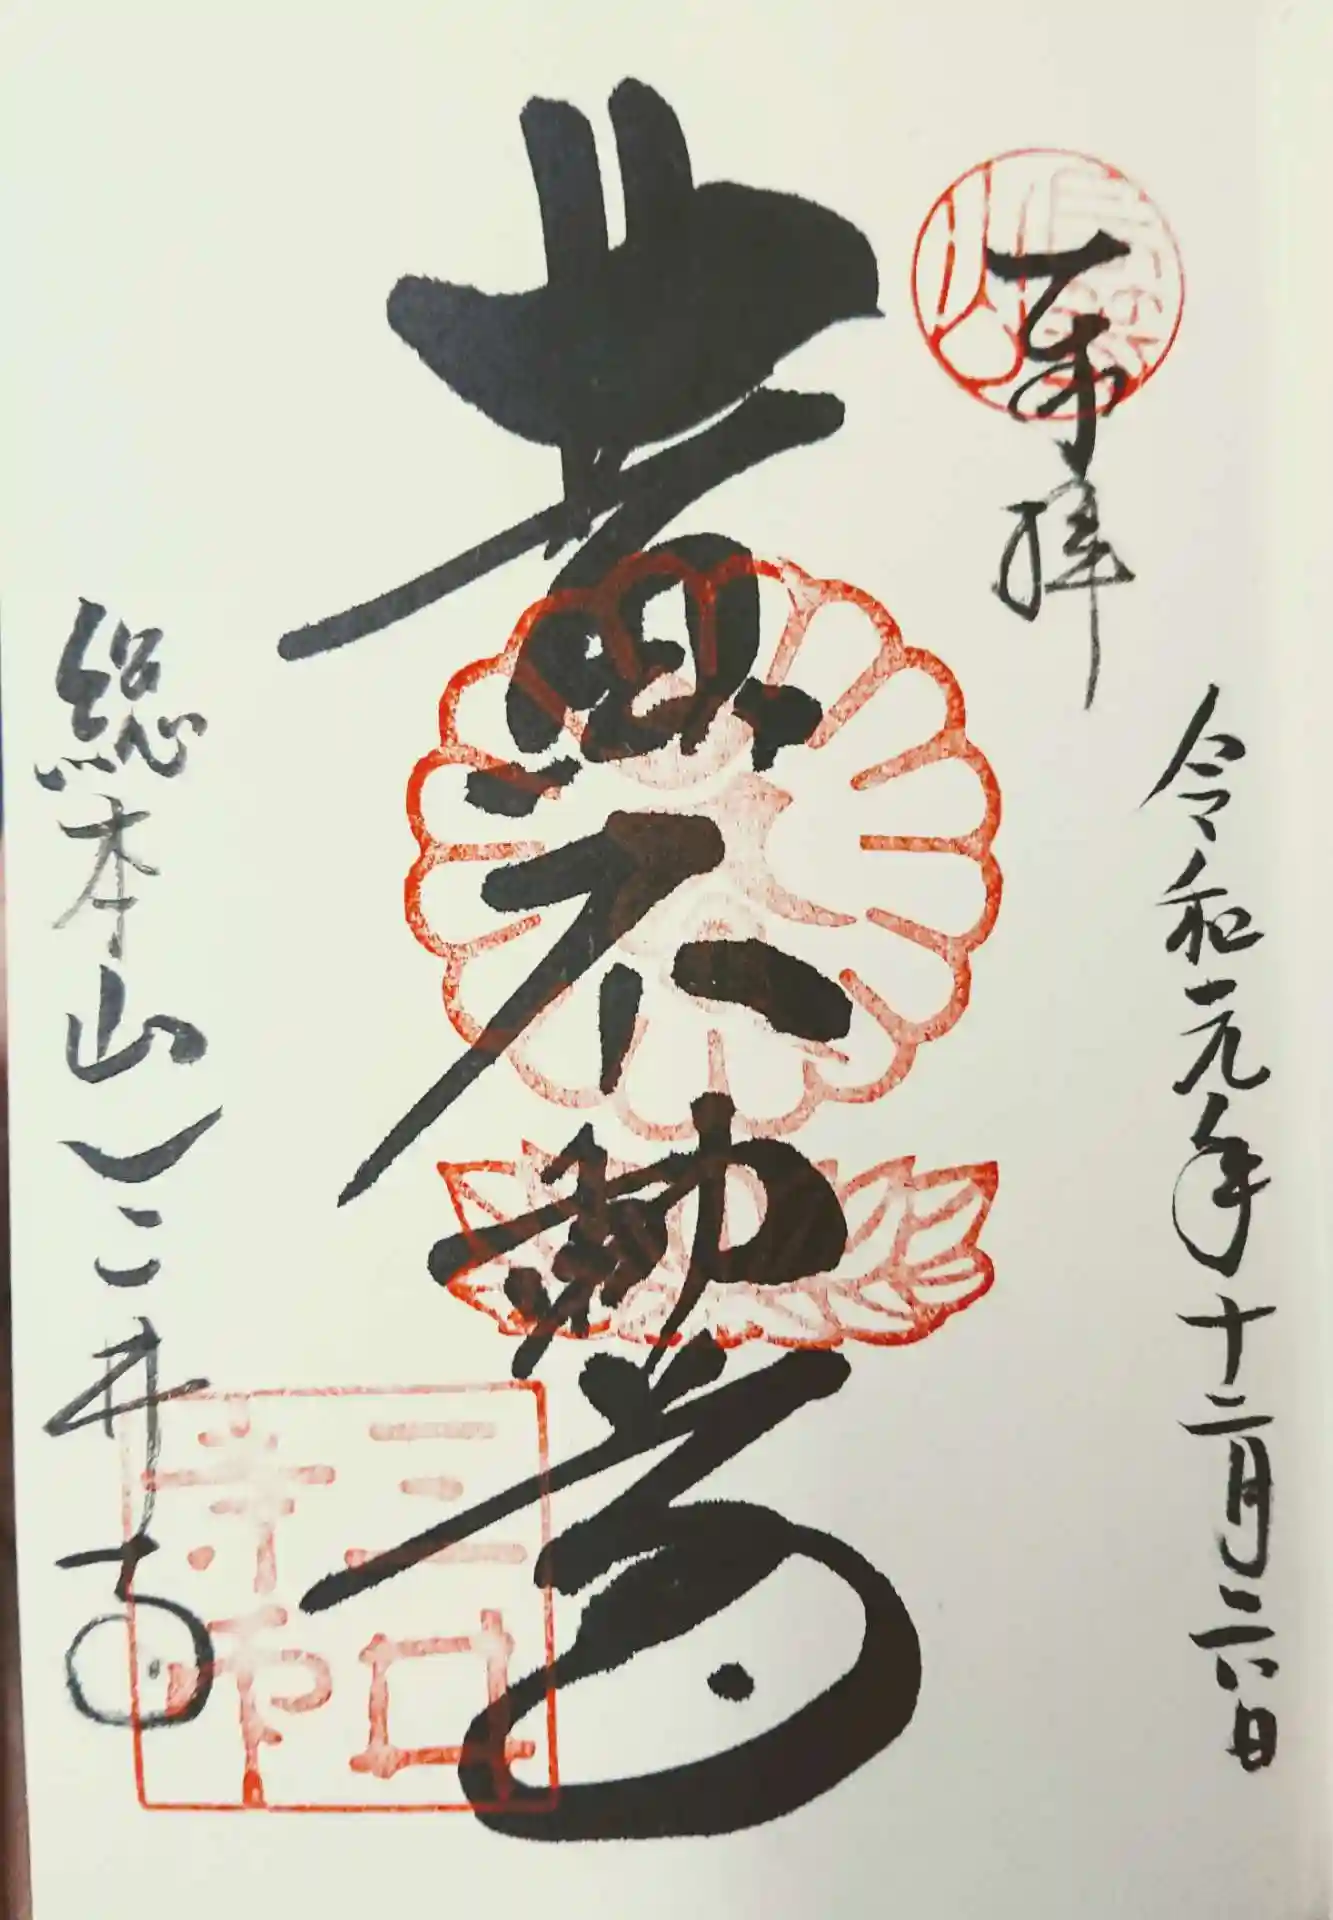 奉拝
令和元年十二月二六日
黄不動尊
総本山三井寺
三井寺印